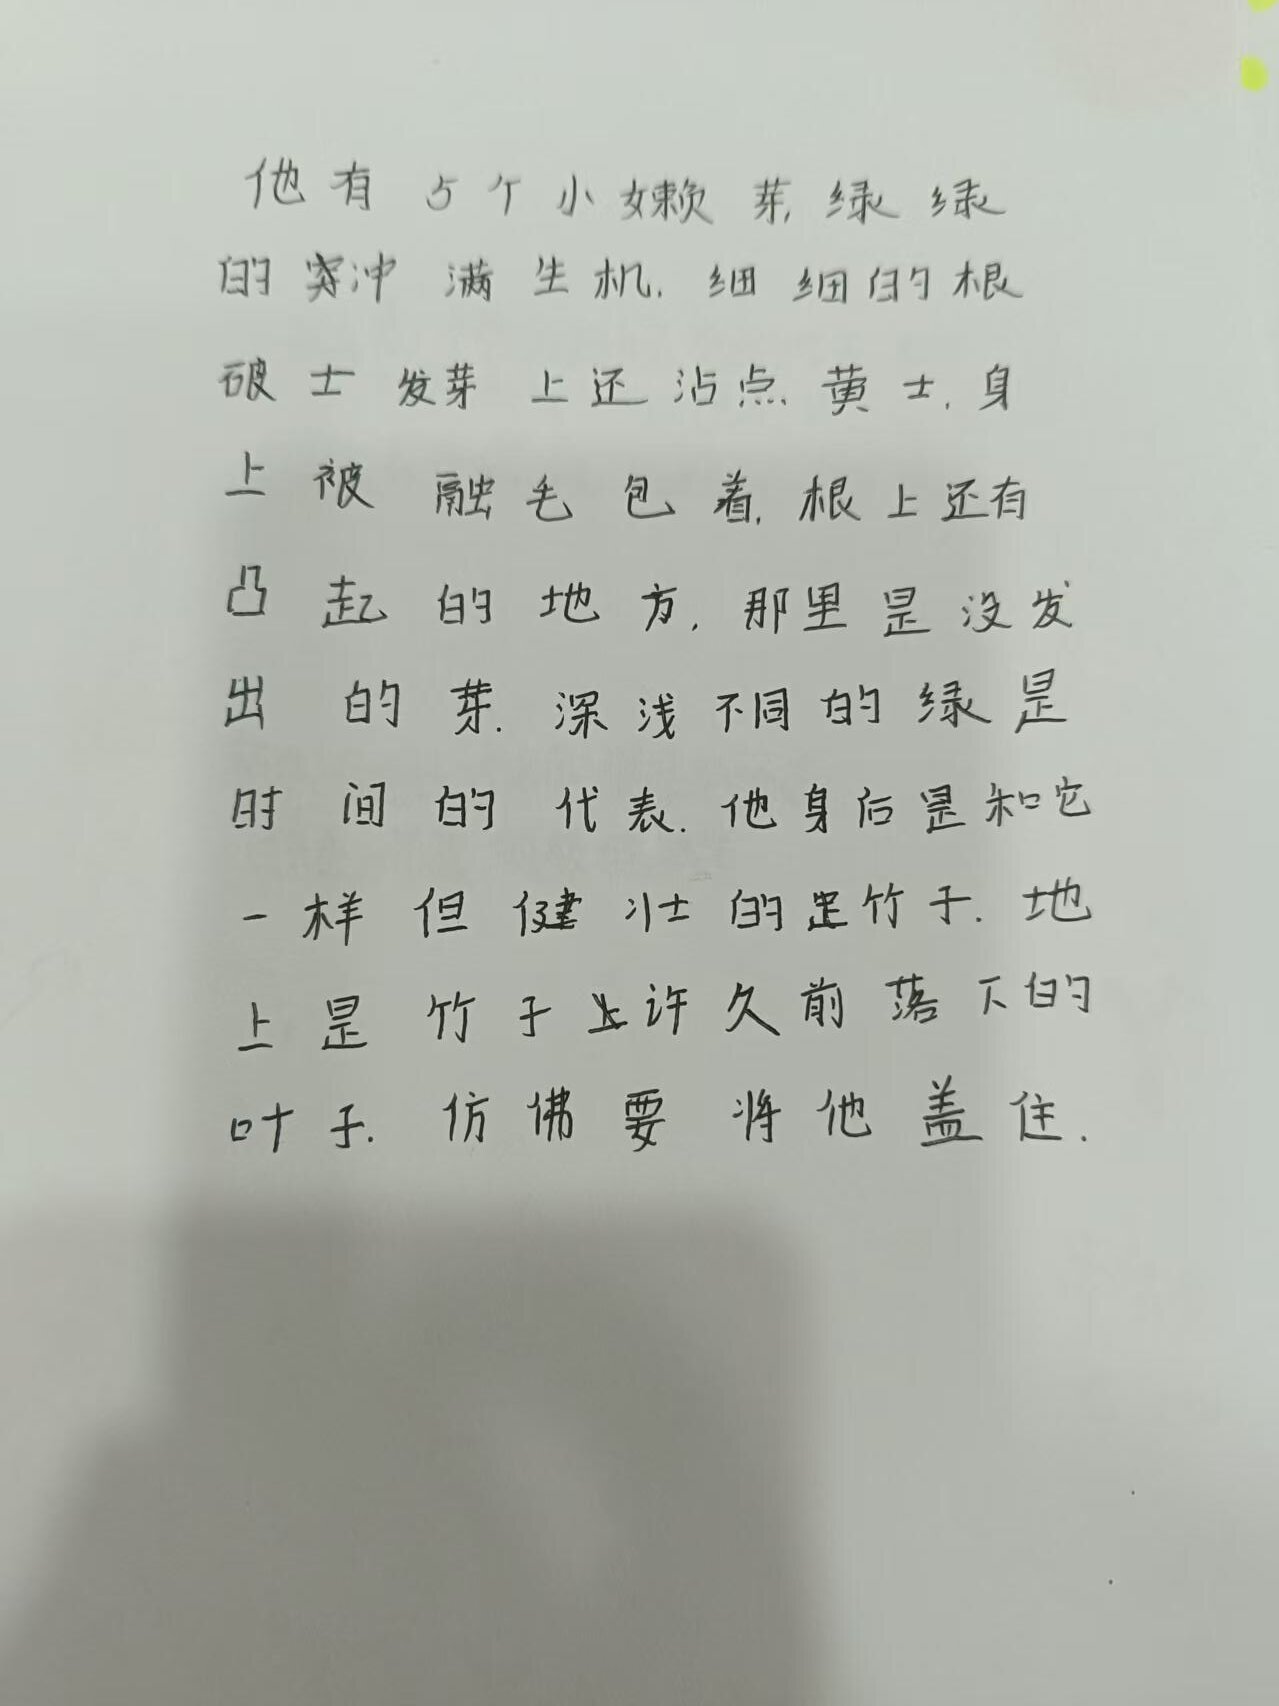 他有5个小嫩芽,绿绿
的突冲满生机.细细的根
破土发芽上还沾点黄土.身
上被融毛包着.根上还有
凸起的地方.那里是没发
出的芽.深浅不同的绿是
时间的代表.他身后是和它
一样但健壮的是竹子.地
上是竹子上许久前落下的
叶子.仿佛要将他盖住.